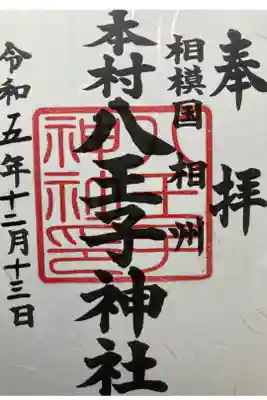 奉拝
相模国 相州
本村八王子神社
八王子神社印
令和五年十二月十三日